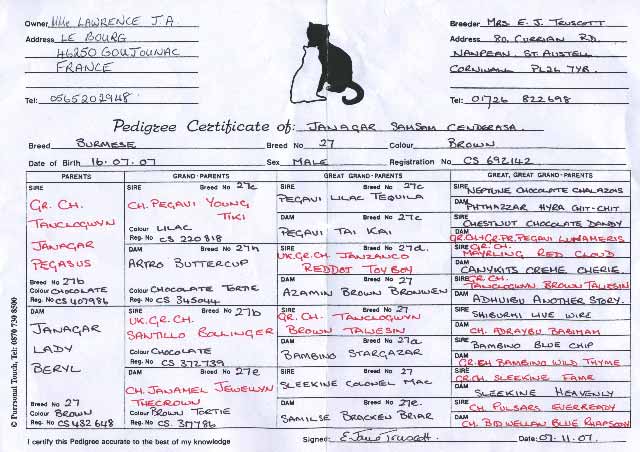 Owner Mlle LAWRENCE J.A
Address LE BOURG
46250 GOUJOUNAC
FRANCE
Tel: 0565202948
Breeder MRS E. J. TRUSCOTT
Address 80. CURRIAN RD.
NANPEAN. ST. AUSTELL
CORNWALL PL26 7YB.
Tel: 01726 822698
Pedigree Certificate of: JANAGAR SAMSAM CENDERASA.
Breed BURMESE Breed No 27 Colour BROWN
Date of Birth 16.07.07 Sex MALE Registration No CS 692142
PARENTS
SIRE
GR. CH.
TANCLOGWYN
JANAGAR
PEGASUS
Breed No 27b
Colour CHOCOLATE
Reg No CS 407986
DAM
JANAGAR
LADY
BERYL
Breed No 27
Colour BROWN
Reg No CS 432648
GRAND-PARENTS
SIRE Breed No 27c
CH. PEGAVI YOUNG
TIKI
Colour LILAC
Reg. No CS 220818
DAM Breed No 27h
ARTRO BUTTERCUP
Colour CHOCOLATE TORTIE
Reg. No CS 345044
SIRE Breed No 27b
UK. GR. CH.
SANTILLO BOLLINGER
Colour CHOCOLATE
Reg. No CS 372739
DAM Breed No 27e
CH. JANAMEL JEWELLYN
THECROWN
Colour BROWN TORTIE
Reg. No CS 317786
GREAT GRAND-PARENTS
SIRE Breed No 27c
PEGAVI LILAC TEQUILA
DAM Breed No 27c
PEGAVI TAI KAI
SIRE Breed No 27d.
UK. GR. CH. JANZANCO
REDDOT TOY BOY
DAM Breed No 27
AZAMIN BROWN BRONWEN
SIRE Breed No 27
GR. CH. TANCLOGWYN
BROWN TALWESIN
DAM Breed No 27a
BAMBINO STARGAZAR
SIRE Breed No 27
SLEEKINE COLONEL MAC
DAM Breed No 27e.
SAMILSE BRACKEN BRIAR
GREAT, GREAT GRAND-PARENTS
SIRE NEPTUNE CHOCOLATE CHALAZOIS
DAM PHTHAZZAR HYRA CHIT-CHIT
SIRE CHESTNUT CHOCOLATE DANDY
DAM GR.CH+GR.PR. PEGAVI LUNAMERIS
SIRE GR. CH. MAYRLING RED CLOUD
DAM CANYKITS CREME CHERIE.
SIRE GR. CH. TANCLOGWYN BROWN TALWESIN
DAM ADHUIBU ANOTHER STORY.
SIRE SHIBURHI LIVE WIRE
DAM CH. ADRAYBU BABIMAH
SIRE BAMBINO BLUE CHIP
DAM GR. CH BAMBINO WILD THYME
SIRE GR. CH. SLEEKINE FAME
DAM SLEEKINE HEAVENLY
SIRE CH. PULSARS EVERREADY
DAM CH. BIDWELLAN BLUE RHAPSODY
I certify this Pedigree accurate to the best of my knowledge Signed: E. Jane Truscott. Date: 07.11.07.
© Purrsonal Touch, Tel: 0870 730 8500